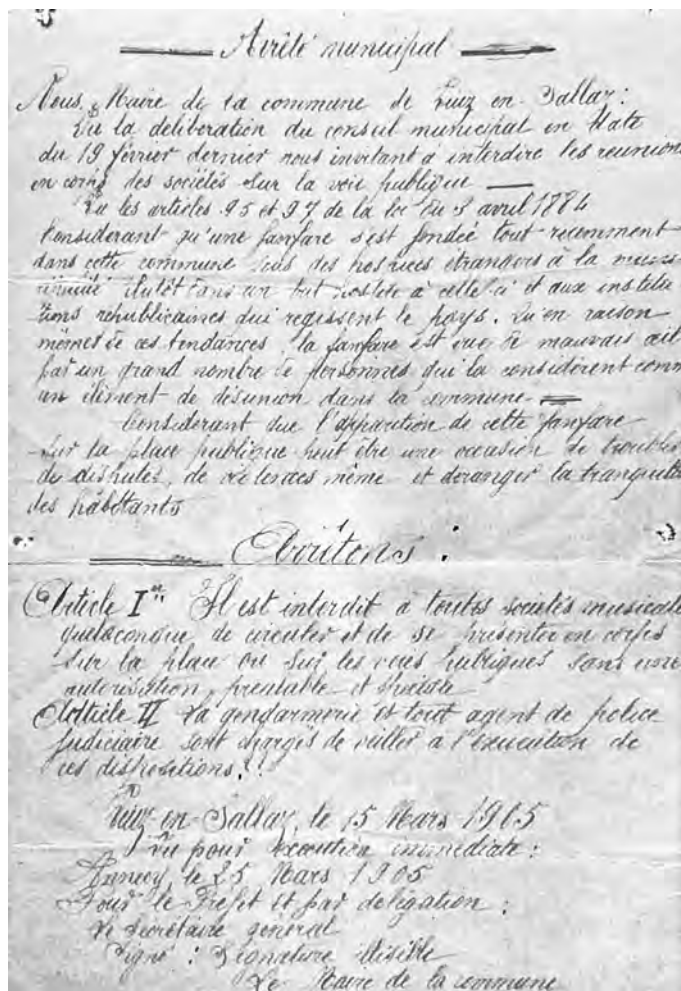 Arrêté municipal
Nous, Maire de la commune de Viuz en-Sallaz :
Vu la déliberation du conseil municipal en date
du 19 février dernier nous invitant à interdire les reunions
en corps des sociétés sur la voie publique
Vu les articles 95 et 97 de la loi du 5 avril 1884
Considerant qu'une fanfare s'est fondée tout recemment
dans cette commune sous des hospices étrangers à la
plutôt dans un but hostile à celle-ci et aux institu
tions républicaines qui regissent le pays. Qu'en raison
mêmes de ces tendances la fanfare est vue de mauvais œil
par un grand nombre de personnes qui la considèrent comm
un élément de désunion dans la commune
Considerant que l'apparition de cette fanfare
sur la place publique peut être une occasion de troubles
de disputes, de violences même et deranger la tranquillité
des habitants
Article I er Il est interdit à toutes sociétés musicale
quelconque de circuler et de se présenter en corps
sur la place ou sur les voies publiques sans une
autorisation, préalable et spéciale
Article II La gendarmerie et tout agent de police
judiciaire sont chargés de veiller a l'exécution de
ces dispositions.
Viuz en-Sallaz, le 15 Mars 1905
Vu pour exécution immédiate :
Annecy, le 25 Mars 1905
Pour le Préfet et par délégation :
Le Secrétaire general
Signé : Signature illisible
Le Maire de la commune